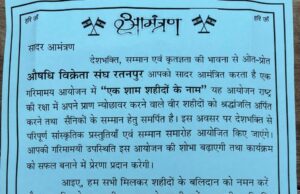 हरि ॐ आमंत्रण हरि ॐ
सादर आमंत्रण
देशभक्ति, सम्मान एवं कृतज्ञता की भावना से ओत-प्रोत
औषधि विक्रेता संघ रतनपुर आपको सादर आमंत्रित करता है एक
गरिमामय आयोजन में "एक शाम शहीदों के नाम" यह आयोजन राष्ट्र
की रक्षा में अपने प्राण न्योछावर करने वाले वीर शहीदों को श्रद्धांजलि अर्पित
करने तथा सैनिकों के सम्मान हेतु समर्पित है। इस अवसर पर देशभक्ति से
परिपूर्ण सांस्कृतिक प्रस्तुतियाँ एवं सम्मान समारोह आयोजित किए जाएंगे।
आपकी गरिमामयी उपस्थिति इस आयोजन की शोभा बढ़ाएगी तथा कार्यक्रम
को सफल बनाने में प्रेरणा प्रदान करेगी।
आइए, हम सभी मिलकर शहीदों के बलिदान को नमन करें